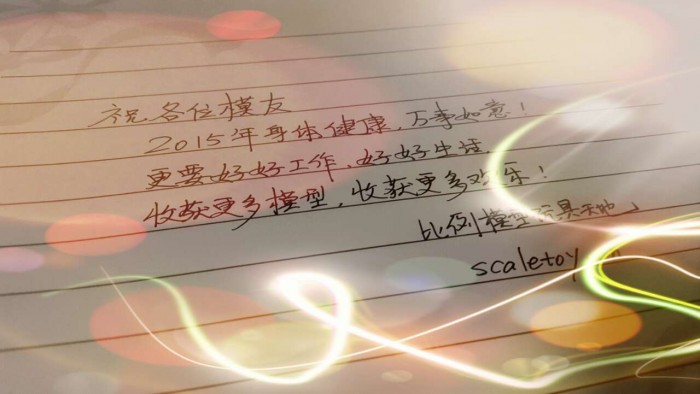 祝各位模友
2015年身体健康,万事如意!
更要好好工作,好好生活
收获更多模型,收获更多欢乐!
比例模型玩具天地
scaletoy